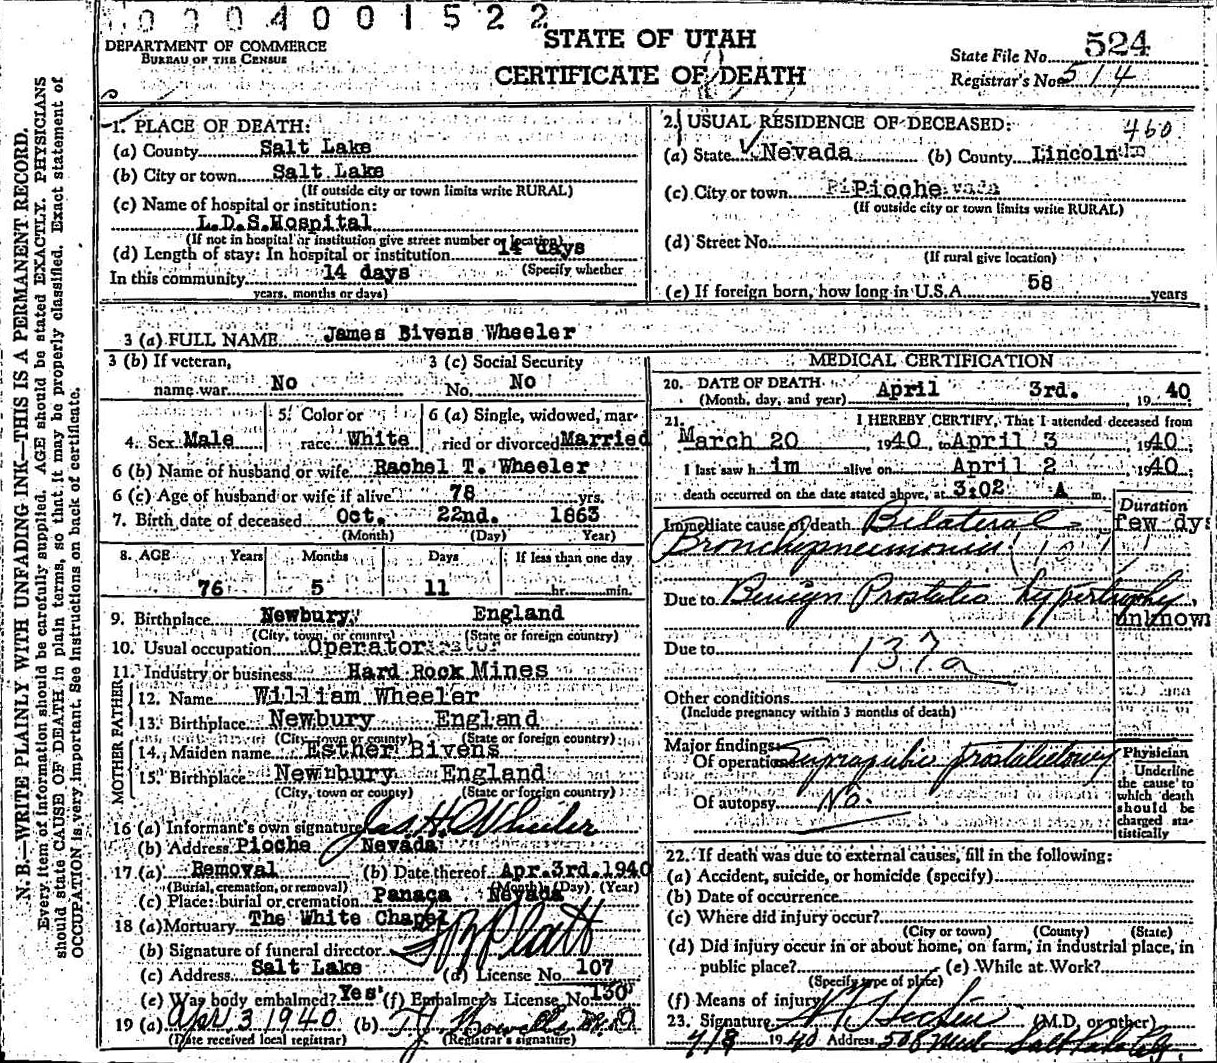 0004001522
DEPARTMENT OF COMMERCE
BUREAU OF THE CENSUS
STATE OF UTAH
CERTIFICATE OF DEATH
State File No. 524
Registrar's No. 514
N. B.—WRITE PLAINLY WITH UNFADING INK—THIS IS A PERMANENT RECORD.
Every item of information should be carefully supplied. AGE should be stated EXACTLY. PHYSICIANS
should state CAUSE OF DEATH in plain terms, so that it may be properly classified. Exact statement of
OCCUPATION is very important. See instructions on back of certificate.
1. PLACE OF DEATH:
(a) County Salt Lake
(b) City or town Salt Lake
(If outside city or town limits write RURAL)
(c) Name of hospital or institution:
L.D.S.Hospital
(If not in hospital or institution give street number or location)
(d) Length of stay: In hospital or institution 14 days
(Specify whether
In this community 14 days
years, months or days)
2. USUAL RESIDENCE OF DECEASED: 460
(a) State Nevada (b) County Lincoln
(c) City or town Pioche
(If outside city or town limits write RURAL)
(d) Street No.
(If rural give location)
(e) If foreign born, how long in U.S.A. 58 years
3 (a) FULL NAME James Bivens Wheeler
3 (b) If veteran,
name war No
3 (c) Social Security
No. No
4. Sex Male
5. Color or
race White
6 (a) Single, widowed, mar-
ried or divorced Married
6 (b) Name of husband or wife Rachel T. Wheeler
6 (c) Age of husband or wife if alive 78 yrs.
7. Birth date of deceased Oct. 22nd. 1863
(Month) (Day) Year)
8. AGE Years Months Days If less than one day
76 5 11 hr. min.
9. Birthplace Newbury England
(City, town, or county) (State or foreign country)
10. Usual occupation Operator
11. Industry or business Hard Rock Mines
FATHER
12. Name William Wheeler
13. Birthplace Newbury England
(City, town or county) (State or foreign country)
MOTHER
14. Maiden name Esther Bivens
15. Birthplace Newbury England
(City, town or county) (State or foreign country)
16 (a) Informant's own signature Jas H Wheeler
(b) Address Pioche Nevada
17 (a) Removal (b) Date thereof Apr.3rd.1940
(Burial, cremation, or removal) (Month) (Day) (Year)
(c) Place: burial or cremation Panaca Nevada
18 (a) Mortuary The White Chapel
(b) Signature of funeral director Platt
(c) Address Salt Lake (d) License No. 107
(e) Was body embalmed? Yes (f) Embalmer's License No. 130
19 (a) Apr. 3 1940 (b) T J Howells
(Date received local registrar) (Registrar's signature)
MEDICAL CERTIFICATION
20. DATE OF DEATH April 3rd. 1940
(Month, day, and year)
21. I HEREBY CERTIFY, That I attended deceased from
March 20 1940, to April 3 1940
I last saw him alive on April 2 1940
death occurred on the date stated above, at 3:02 A m.
Duration
Immediate cause of death Bilateral few dys
Bronchopneumonia (107)
Due to Benign Prostatic hypertrophy unknown
Due to
137a
Other conditions
(Include pregnancy within 3 months of death)
Major findings:
Of operations Suprapubic prostatectomy
Of autopsy No.
Physician
Underline
the cause to
which death
should be
charged sta-
tistically
22. If death was due to external causes, fill in the following:
(a) Accident, suicide, or homicide (specify)
(b) Date of occurrence
(c) Where did injury occur?
(City or town) (County) (State)
(d) Did injury occur in or about home, on farm, in industrial place, in
public place? (e) While at Work?
(Specify type of place)
(f) Means of injury
23. Signature (M.D. or other)
4/3 1940 Address 508 Med.